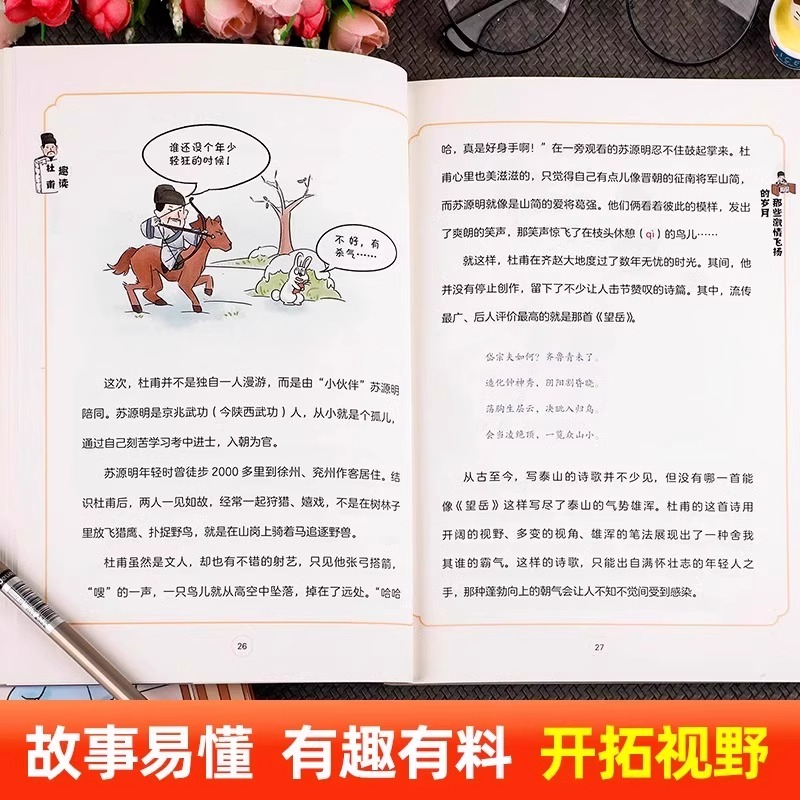 趣读
杜甫
谁还没个年少
轻狂的时候！
不好，有
杀气……
这次，杜甫并不是独自一人漫游，而是由“小伙伴”苏源明
陪同。苏源明是京兆武功（今陕西武功）人，从小就是个孤儿，
通过自己刻苦学习考中进士，入朝为官。
苏源明年轻时曾徒步 2000 多里到徐州、兖州作客居住。结
识杜甫后，两人一见如故，经常一起狩猎、嬉戏，不是在树林子
里放飞猎鹰、扑捉野鸟，就是在山岗上骑着马追逐野兽。
杜甫虽然是文人，却也有不错的射艺，只见他张弓搭箭，
“嗖”的一声，一只鸟儿就从高空中坠落，掉在了远处。“哈哈
26
那些激情飞扬
的岁月
哈，真是好身手啊！”在一旁观看的苏源明忍不住鼓起掌来。杜
甫心里也美滋滋的，只觉得自己有点儿像晋朝的征南将军山简，
而苏源明就像是山简的爱将葛强。他们俩看着彼此的模样，发出
了爽朗的笑声，那笑声惊飞了在枝头休憩（qì）的鸟儿……
就这样，杜甫在齐赵大地度过了数年无忧的时光。其间，他
并没有停止创作，留下了不少让人击节赞叹的诗篇。其中，流传
最广、后人评价最高的就是那首《望岳》。
岱宗夫如何？齐鲁青未了。
造化钟神秀，阴阳割昏晓。
荡胸生层云，决眦入归鸟。
会当凌绝顶，一览众山小。
从古至今，写泰山的诗歌并不少见，但没有哪一首能
像《望岳》这样写尽了泰山的气势雄浑。杜甫的这首诗用
开阔的视野、多变的视角、雄浑的笔法展现出了一种舍我
其谁的霸气。这样的诗歌，只能出自满怀壮志的年轻人之
手，那种蓬勃向上的朝气会让人不知不觉间受到感染。
27
故事易懂 有趣有料 开拓视野